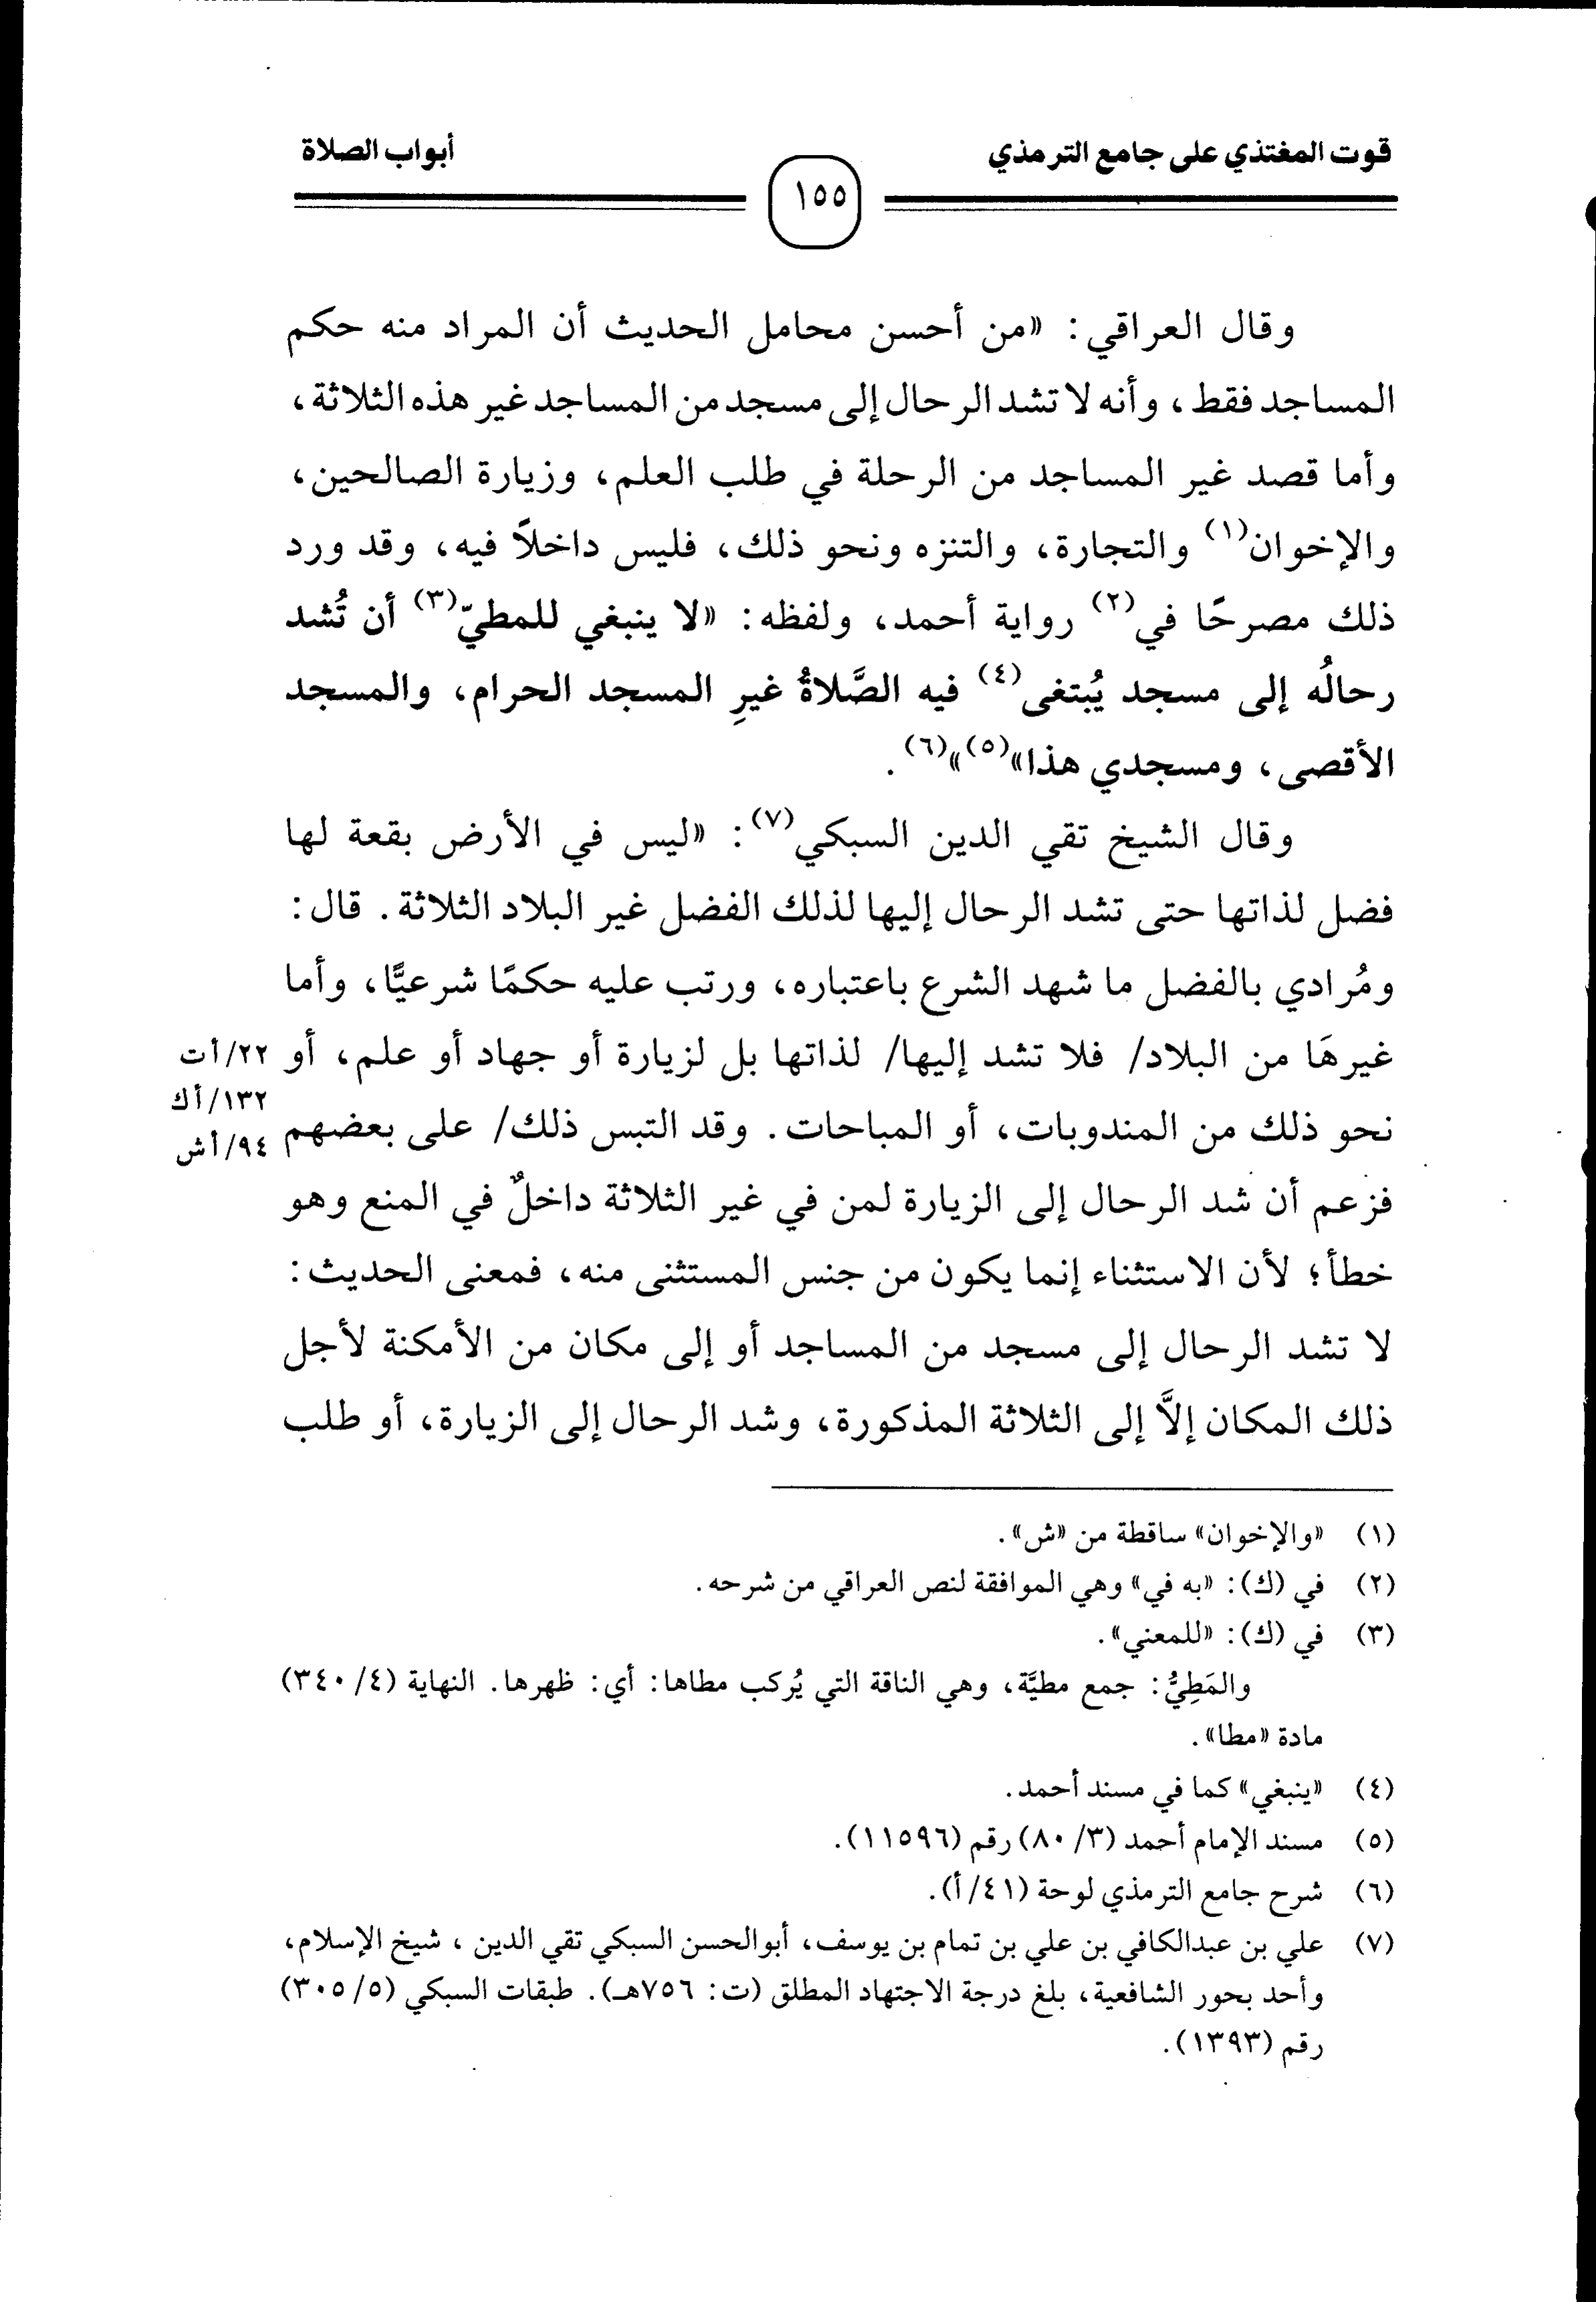 قوت المغتذي على جامع الترمذي
أبواب الصلاة
١٥٥
وقال العراقي: «من أحسن محامل الحديث أن المراد منه حكم
المساجد فقط، وأنه لا تشد الرحال إلى مسجد من المساجد غير هذه الثلاثة،
وأما قصد غير المساجد من الرحلة في طلب العلم، وزيارة الصالحين،
والإخوان(١) والتجارة، والتنزه ونحو ذلك، فليس داخلاً فيه، وقد ورد
ذلك مصرحًا في(٢) رواية أحمد، ولفظه: «لا ينبغي للمطيّ(٣) أن تُشد
رحالُه إلى مسجد يُبتغى(٤) فيه الصَّلاةُ غيرِ المسجد الحرام، والمسجد
الأقصى، ومسجدي هذا»(٥)»(٦).
وقال الشيخ تقي الدين السبكي(٧): «ليس في الأرض بقعة لها
فضل لذاتها حتى تشد الرحال إليها لذلك الفضل غير البلاد الثلاثة. قال:
ومُرادي بالفضل ما شهد الشرع باعتباره، ورتب عليه حكمًا شرعيًّا، وأما
غيرهَا من البلاد/ فلا تشد إليها/ لذاتها بل لزيارة أو جهاد أو علم، أو
٢٢/أت
١٣٢/أك
نحو ذلك من المندوبات، أو المباحات. وقد التبس ذلك/ على بعضهم
٩٤/أش
فزعم أن شد الرحال إلى الزيارة لمن في غير الثلاثة داخلٌ في المنع وهو
خطأ؛ لأن الاستثناء إنما يكون من جنس المستثنى منه، فمعنى الحديث:
لا تشد الرحال إلى مسجد من المساجد أو إلى مكان من الأمكنة لأجل
ذلك المكان إلاَّ إلى الثلاثة المذكورة، وشد الرحال إلى الزيارة، أو طلب
(١) «والإخوان» ساقطة من «ش».
(٢) في (ك): «به في» وهي الموافقة لنص العراقي من شرحه.
(٣) في (ك): «للمعني».
والمَطِيُّ: جمع مطيَّة، وهي الناقة التي يُركب مطاها: أي: ظهرها. النهاية (٤/ ٣٤٠)
مادة «مطا».
(٤) «ينبغي» كما في مسند أحمد.
(٥) مسند الإمام أحمد (٣/ ٨٠) رقم (١١٥٩٦).
(٦) شرح جامع الترمذي لوحة (٤١/ أ).
(٧) علي بن عبدالكافي بن علي بن تمام بن يوسف، أبوالحسن السبكي تقي الدين ، شيخ الإسلام،
وأحد بحور الشافعية، بلغ درجة الاجتهاد المطلق (ت: ٧٥٦هـ). طبقات السبكي (٥/ ٣٠٥)
رقم (١٣٩٣).